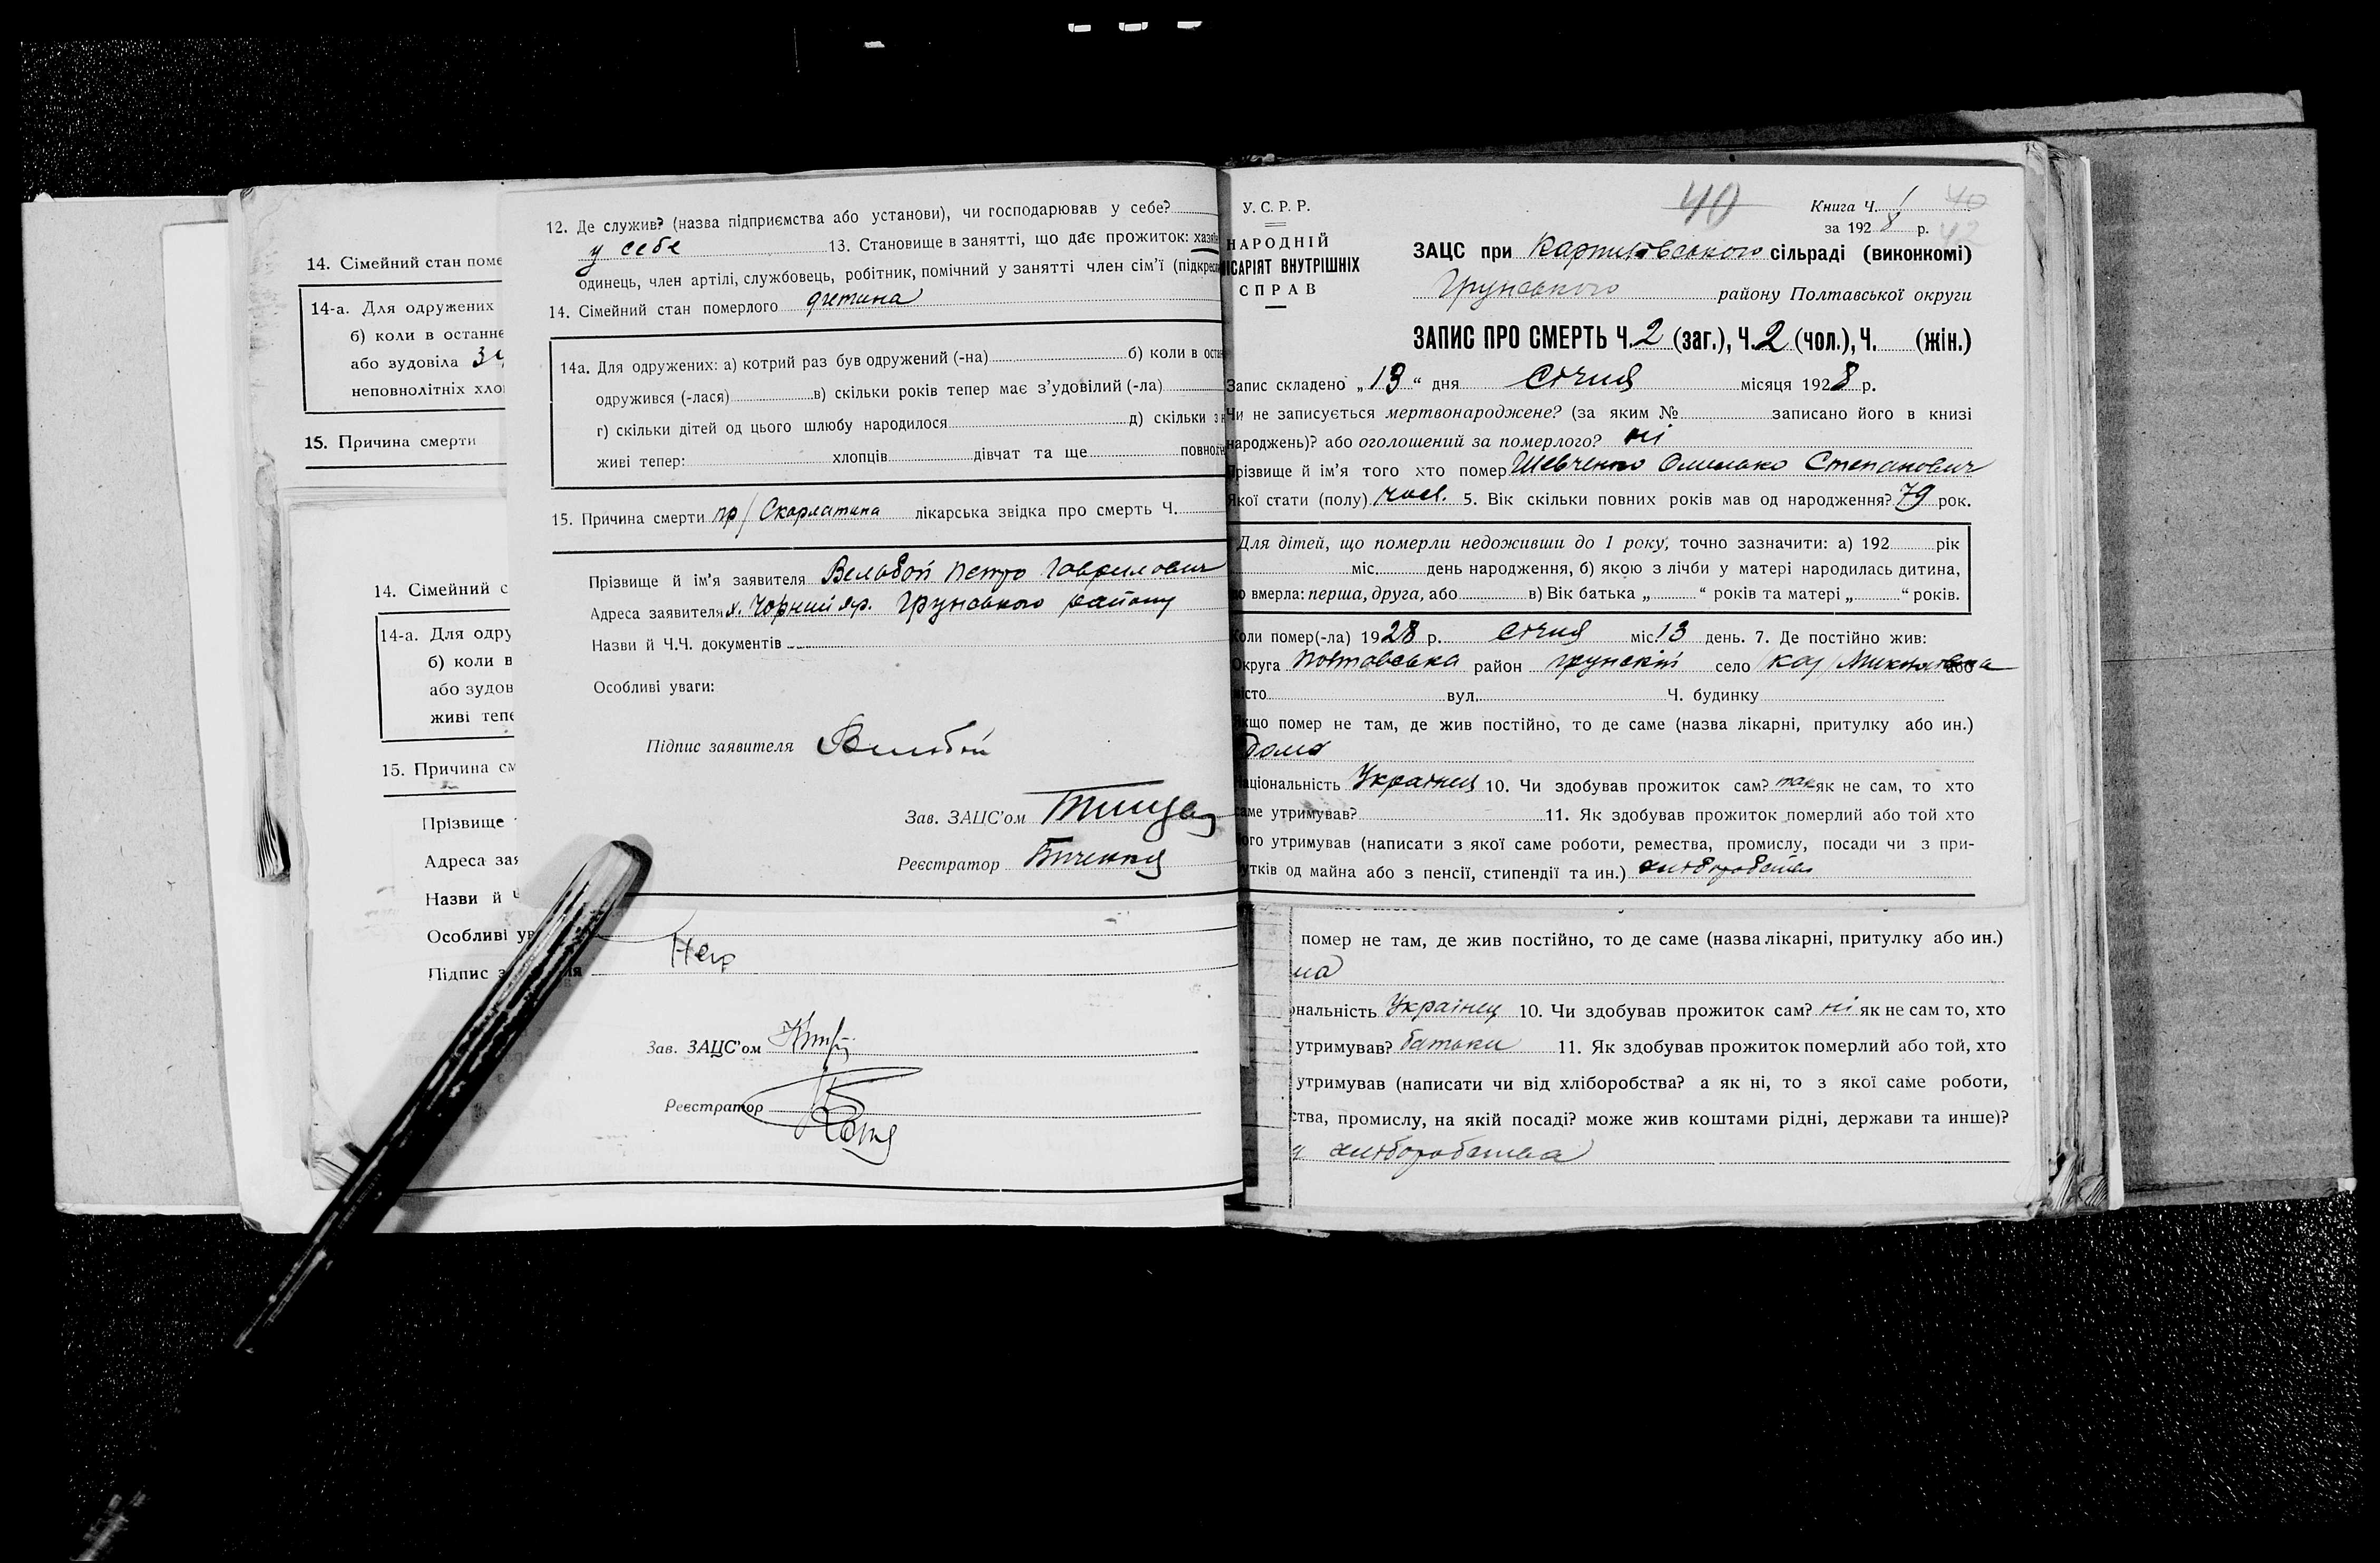 14. Сімейний стан поме
14-а. Для одружених
б) коли в останнє
або зудовіла
неповнолітніх хло
15. Причина смерти
14. Сімейний с
14-а. Для одру
б) коли в
або зудов
живі тепе
15. Причина см
Прізвище
Адреса зая
Назви й Ч
Особливі ув
Підпис з
12. Де служив? (назва підприємства або установи), чи господарював у себе?
у себе 13. Становище в занятті, що дає прожиток: хазяїн
одинець, член артілі, службовець, робітник, помічний у занятті член сім’ї (підкресл
14. Сімейний стан померлого дитина
14а. Для одружених: а) котрий раз був одружений (-на) б) коли в оста
одружився (-лася) в) скільки років тепер має з’удовілий (-ла)
г) скільки дітей од цього шлюбу народилося д) скільки з н
живі тепер: хлопців дівчат та ще повноліт
15. Причина смерти пр/ Скарлатина лікарська звідка про смерть Ч.
Прізвище й ім’я заявителя Вельбой Петро Гаврилович
Адреса заявителя х. Чорний Яр. Грунського району
Назви й Ч.Ч. документів
Особливі уваги:
Підпис заявителя Вельбой
Зав. ЗАЦС’ом
Реєстратор
Зав. ЗАЦС’ом
Реєстратор
У. С. Р. Р.
НАРОДНІЙ
ІСАРІЯТ ВНУТРІШНІХ
СПРАВ
40
Книга Ч. 1
40
за 1928 р.
42
ЗАЦС при сільраді (виконкомі)
Грунського району Полтавської округи
ЗАПИС ПРО СМЕРТЬ Ч. 2 (заг.), Ч. 2 (чол.), Ч. (жін.)
Запис складено „13“ дня Січня місяця 1928 р.
Чи не записується мертвонароджене? (за яким № записано його в книзі
народжень)? або оголошений за померлого? ні
Прізвище й ім’я того хто помер Шевченко Омелько Степанович
Якої стати (полу) чол. 5. Вік скільки повних років мав од народження? 79 рок.
Для дітей, що померли недоживши до 1 року, точно зазначити: а) 192 рік
міс. день народження, б) якою з лічби у матері народилась дитина,
що вмерла: перша, друга, або в) Вік батька „ “ років та матері „ “ років.
Коли помер(-ла) 1928 р. Січня міс. 13 день. 7. Де постійно жив:
Округа Полтавська район Грунскій село або
місто вул. Ч. будинку
Якщо помер не там, де жив постійно, то де саме (назва лікарні, притулку або ин.)
дома
Національність Українец 10. Чи здобував прожиток сам? так як не сам, то хто
саме утримував? 11. Як здобував прожиток померлий або той хто
його утримував (написати з якої саме роботи, ремества, промислу, посади чи з при-
бутків од майна або з пенсії, стипендії та ин.) хліборобства
помер не там, де жив постійно, то де саме (назва лікарні, притулку або ин.)
ма
ональність Українец 10. Чи здобував прожиток сам? ні як не сам то, хто
утримував? батьки 11. Як здобував прожиток померлий або той, хто
утримував (написати чи від хліборобства? а як ні, то з якої саме роботи,
ства, промислу, на якій посаді? може жив коштами рідні, держави та инше)?
хліборобства